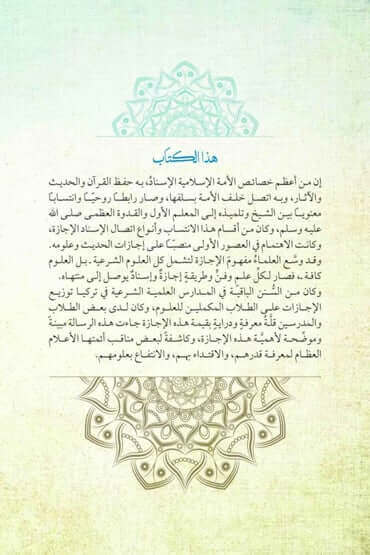 هذا الكتاب
إن من أعظم خصائص الأمة الإسلامية الإسنادُ، به حفظ القرآن والحديث
والآثار، وبه اتصل خلف الأمة بسلفها، وصار رابطًا روحيًّا وانتسابًا
معنويًّا بين الشيخ وتلميذه إلى المعلم الأول والقدوة العظمى صلى الله
عليه وسلم، وكان من أقسام هذا الانتساب وأنواع اتصال الإسناد الإجازة،
وكانت الاهتمام في العصور الأولى منصبًا على إجازات الحديث وعلومه.
وقد وسَّع العلماءُ مفهومَ الإجازة لتشمل كل العلوم الشرعية ـ بل العلوم
كافة ـ، فصار لكلِّ علمٍ وفنٍّ وطريقةٍ إجازةٌ وإسنادٌ يوصل إلى منتهاه.
وكان من السُّنن الباقيَّة في المدارس العلمية الشرعية في تركيا توزيع
الإجازات على الطلاب المكملين للعلوم، وكان لدى بعض الطلاب
والمدرسين قلَّةُ معرفةٍ ودرايةٍ بقيمة هذه الإجازة جاءت هذه الرسالة مبينةً
وموضِّحةً لأهميَّة هذه الإجازة، وكاشفةً لبعض مناقب أئمتها الأعلام
العظام لمعرفة قدرهم، والاقتداء بهم، والانتفاع بعلومهم.